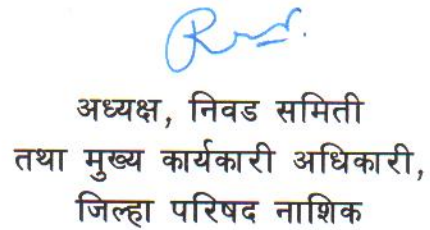 अध्यक्ष, निवड समिती
तथा मुख्य कार्यकारी अधिकारी,
जिल्हा परिषद नाशिक